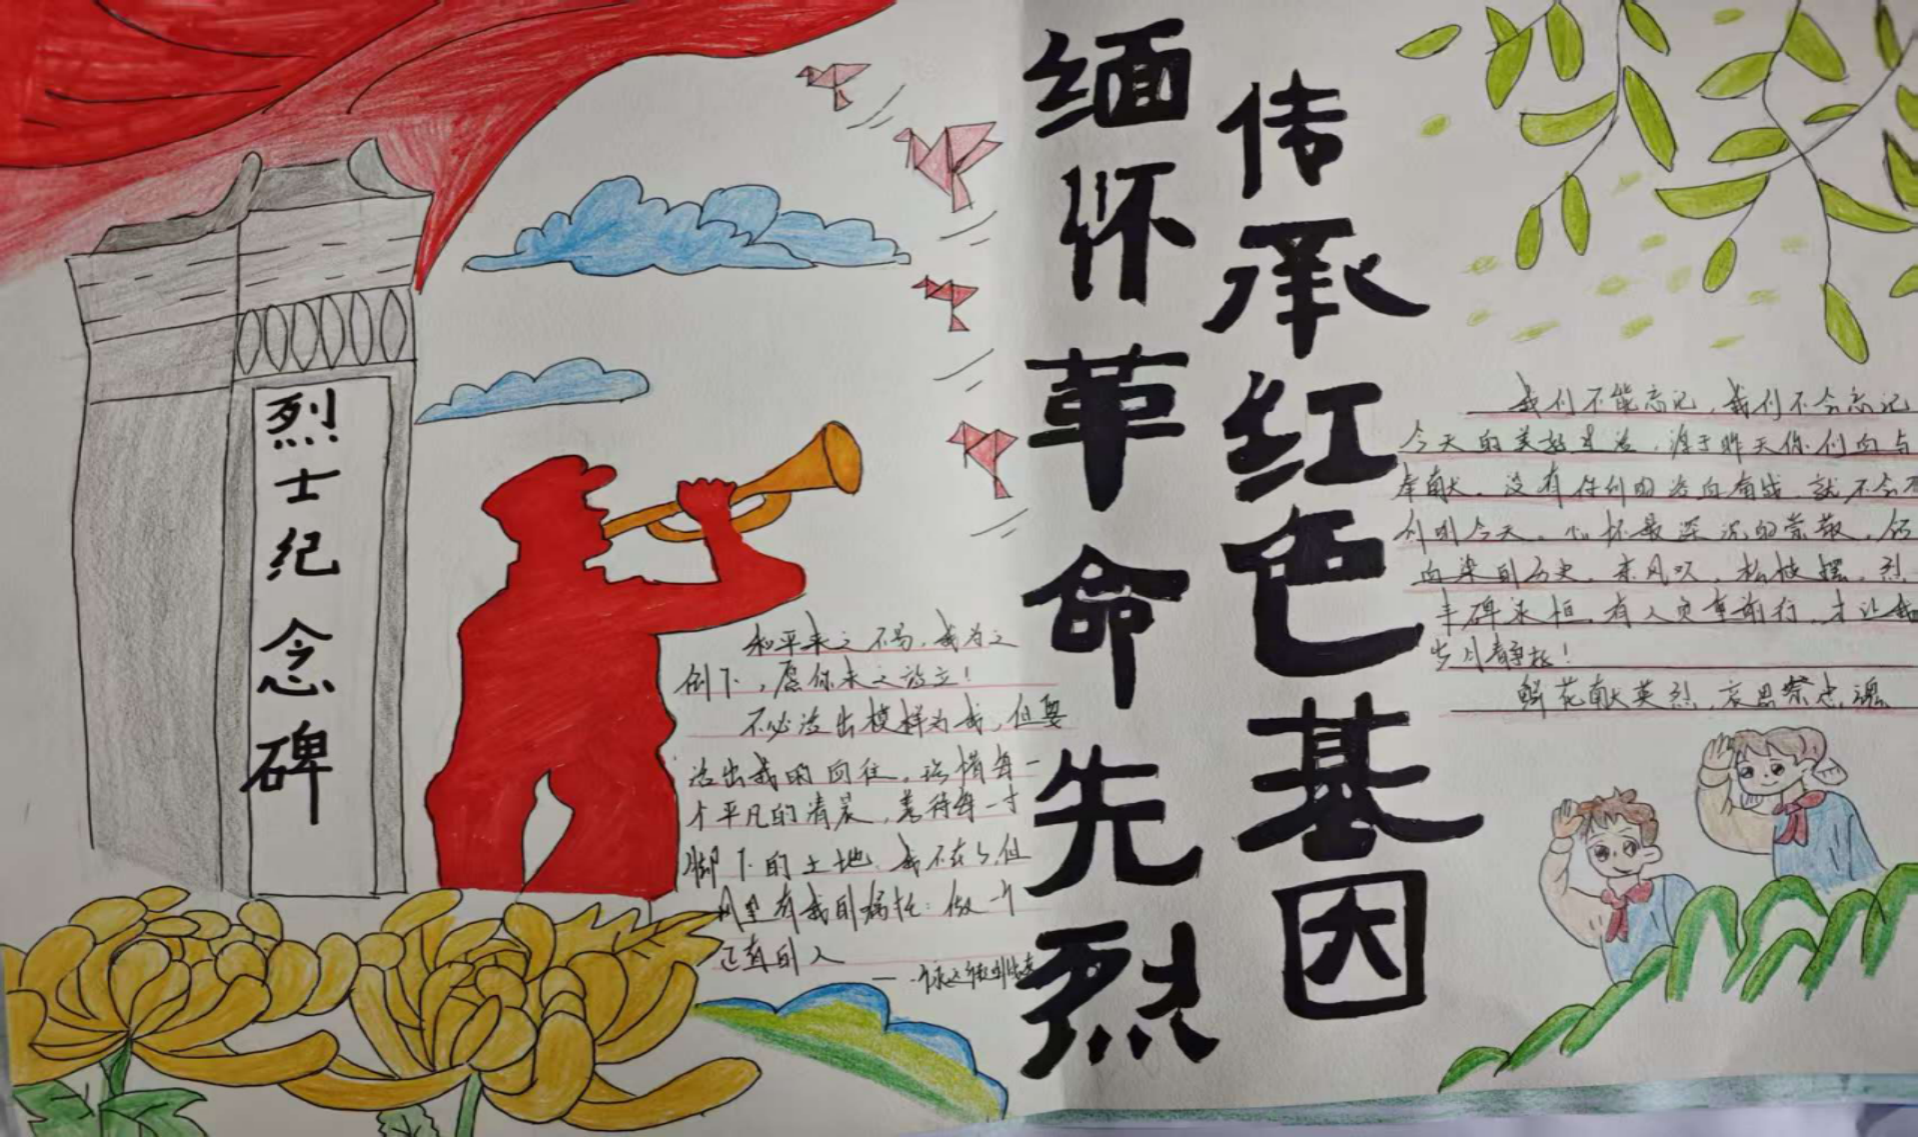 缅怀革命先烈
传承红色基因
烈士纪念碑
和平来之不易，我为之
倒下，愿你来之设立！
不必活出模样为我，但要
活出我的向往，珍惜每一
个平凡的清晨，善待每一寸
脚下的土地。我不在了，但
风里有我的嘱托：做一个
正直的人
我们不能忘记，我们不会忘记
今天的美好生活，源于昨天你们的与
奉献。没有你们的浴血奋战，就不会有
们的今天。心怀最深沉的崇敬，
血染的历史。东风吹，松枝摆，烈
丰碑永恒。有人负重前行，才让我
岁月静好！
鲜花献英烈，哀思祭忠魂